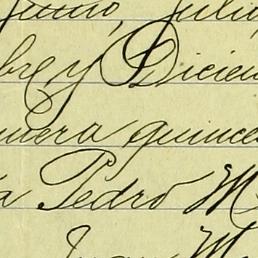 Junio, Julio
bre y Diciem
mera quince
a Pedro M
Juan M